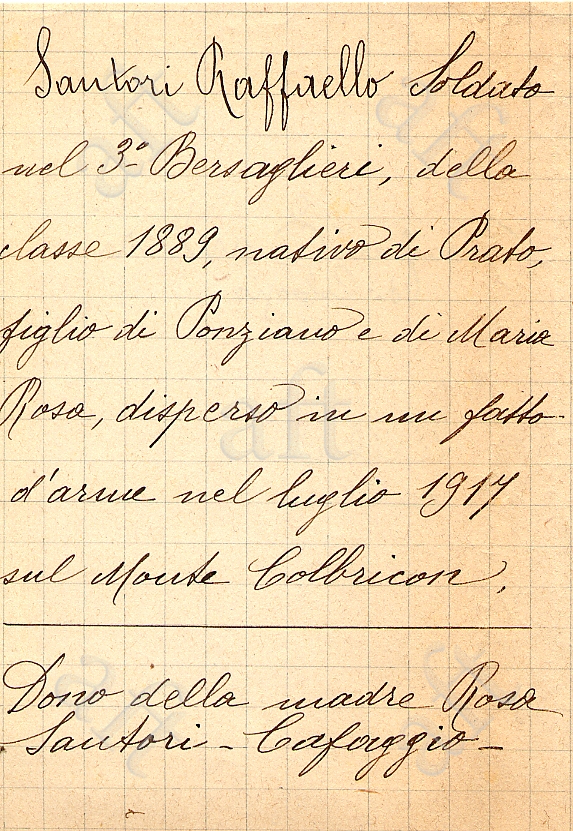 Santori Raffaello Soldato
nel 3º Bersaglieri, della
classe 1889, nativo di Prato,
figlio di Ponziano e di Maria
Rosa, disperso in un fatto
d'arme nel luglio 1917
sul Monte Colbricon.
Dono della madre Rosa
Santori - Cafaggio -
aft
aft
aft
aft